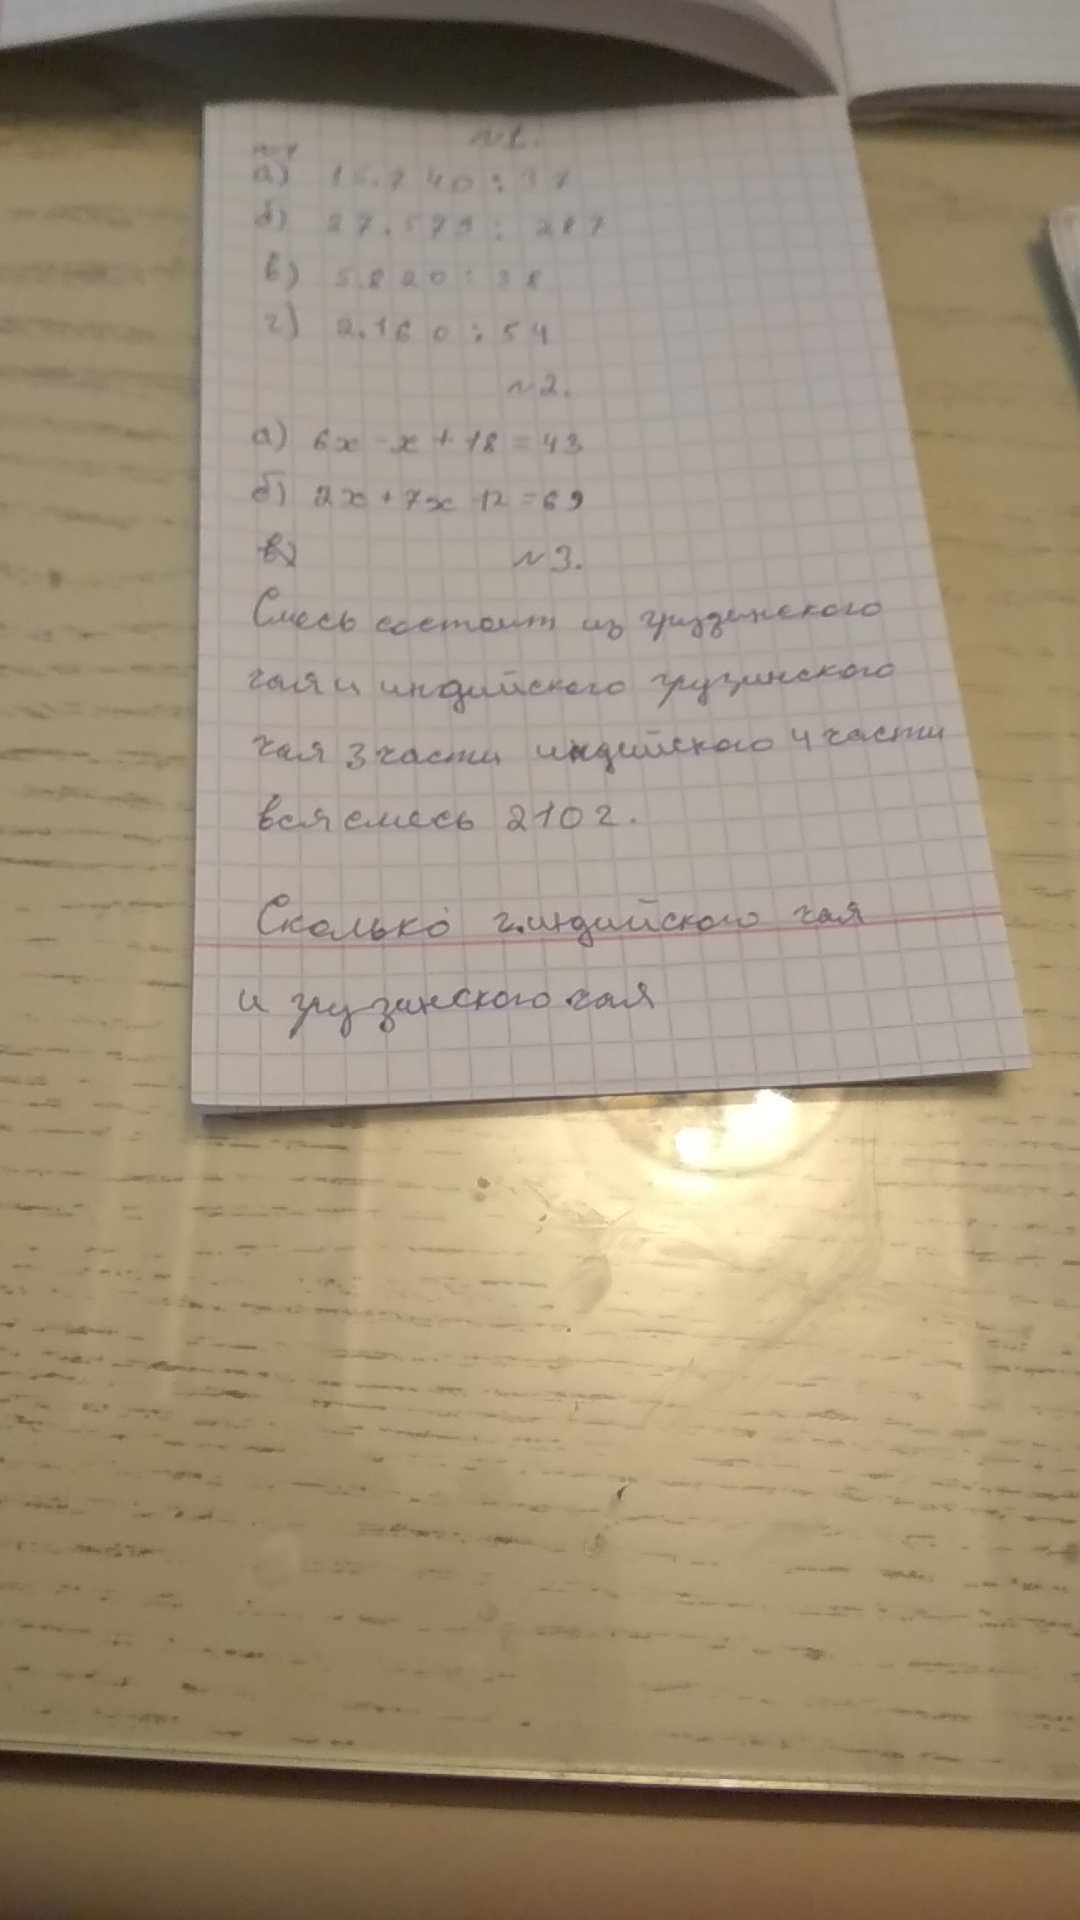 №1.
№1
а) 15.740 : 37
б) 27.579 : 287
в) 5.820 : 38
г) 2.160 : 54
№2.
а) 6x - x + 18 = 43
б) 2x + 7x - 12 = 69
№3.
Смесь состоит из груззинского
чая и индийского грузинского
чая 3 части индийского 4 части
вся смесь 210 г.
Сколько г. индийского чая
и грузинского чая